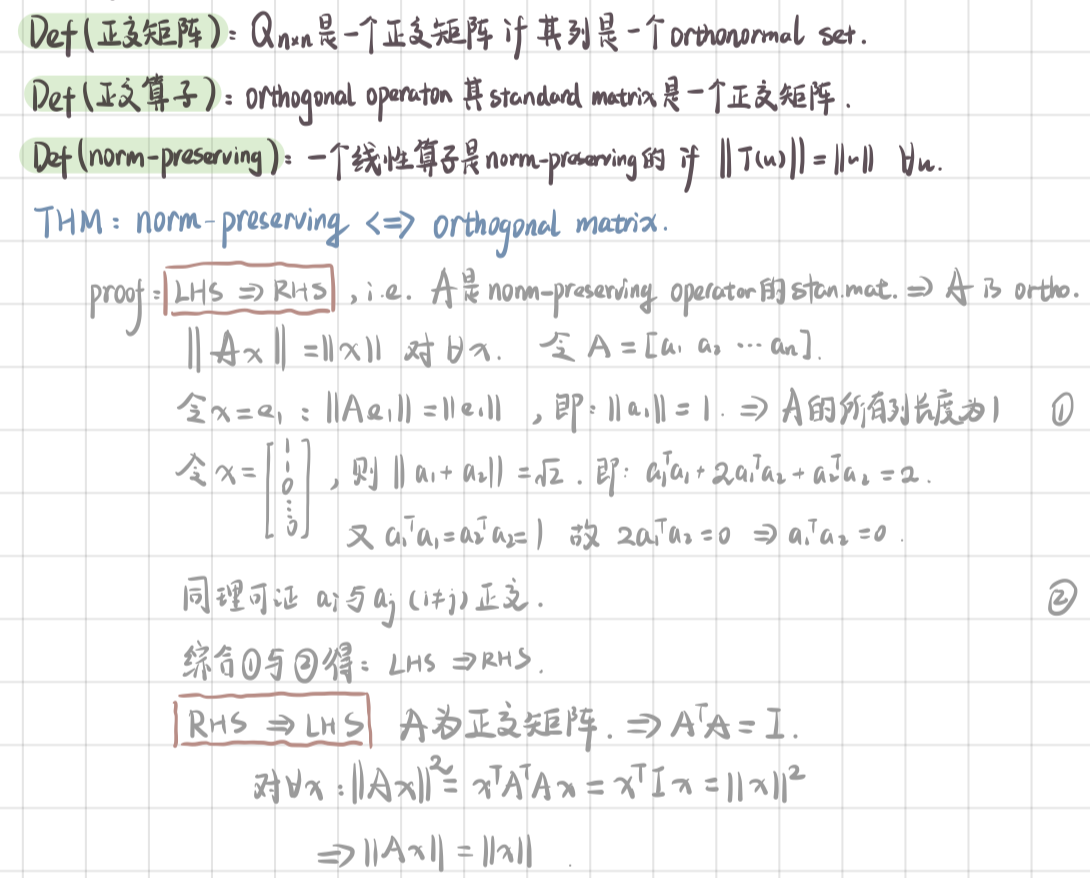 Def(正交矩阵)：Qn×n是一个正交矩阵 if 其列是一个orthonormal set.
Def(正交算子)：orthogonal operator 其standard matrix是一个正交矩阵.
Def(norm-preserving)：一个线性算子是norm-preserving的 if ||T(u)||=||u|| ∀u.
THM: norm-preserving <=> orthogonal matrix.
proof: LHS ⇒ RHS, i.e. A是norm-preserving operator的stan.mat. ⇒ A 为 ortho.
||Ax||=||x|| 对∀x. 令 A=[a₁ a₂ ⋯ aₙ].
令x=e₁：||Ae₁||=||e₁||，即：||a₁||=1. ⇒ A的所有列长度为1 ①
令x=[1 1 0 ⋮ 0]，则||a₁+a₂||=√2. 即：a₁ᵀa₁+2a₁ᵀa₂+a₂ᵀa₂=2.
又 a₁ᵀa₁=a₂ᵀa₂=1 故 2a₁ᵀa₂=0 ⇒ a₁ᵀa₂=0.
同理可证 aᵢ与aⱼ (i≠j) 正交. ②
综合①与②得：LHS ⇒RHS.
RHS ⇒ LHS A为正交矩阵. ⇒ AᵀA=I.
对∀x：||Ax||²=xᵀAᵀAx=xᵀIx=||x||²
⇒||Ax||=||x||.